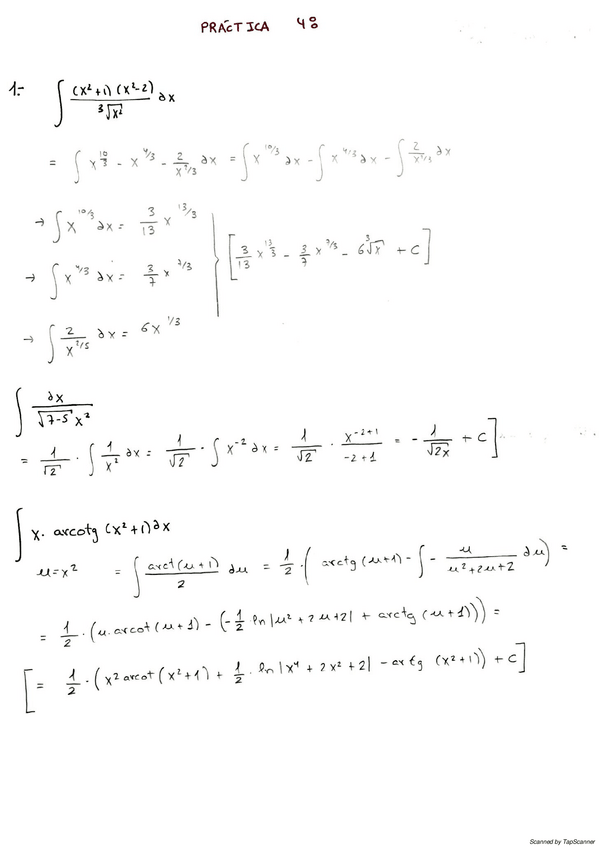 PRÁCTICA 4º
1.- ∫ (x²+1)(x²-2) / ³√x² ∂x
= ∫ x^10/3 - x^4/3 - 2/x^2/3 ∂x = ∫ x^10/3 ∂x - ∫ x^4/3 ∂x - ∫ 2/x^2/3 ∂x
→ ∫ x^10/3 ∂x = 3/13 x^13/3
[ 3/13 x^13/3 - 3/7 x^7/3 - 6 ³√x + C ]
→ ∫ x^4/3 ∂x = 3/7 x^7/3
→ ∫ 2/x^2/3 ∂x = 6x^1/3
∫ ∂x / √7-5 x²
= 1/√2 · ∫ 1/x² ∂x = 1/√2 · ∫ x^-2 ∂x = 1/√2 · x^-2+1 / -2+1 = - 1/√2x + C ]
∫ x · arcotg (x²+1) ∂x
u = x² = ∫ arct(u+1)/2 du = 1/2 · ( arctg (u+1) - ∫ - u / u²+2u+2 du ) =
= 1/2 · (u.arcot (u+1) - (-1/2 ln|u²+2u+2| + arctg (u+1))) =
[ = 1/2 · (x² arcot (x²+1) + 1/2 · ln|x⁴+2x²+2| - artg (x²+1)) + C ]
Scanned by TapScanner